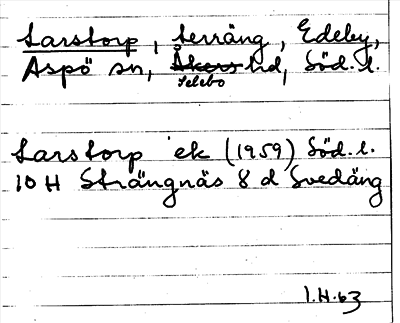 Larstorp, terräng, Edeby,
Aspö sn, Åkers hd, Söd. l.
Selebo
Larstorp ek (1959) Söd. l.
10 H Strängnäs 8 d Svedäng
I.H.63